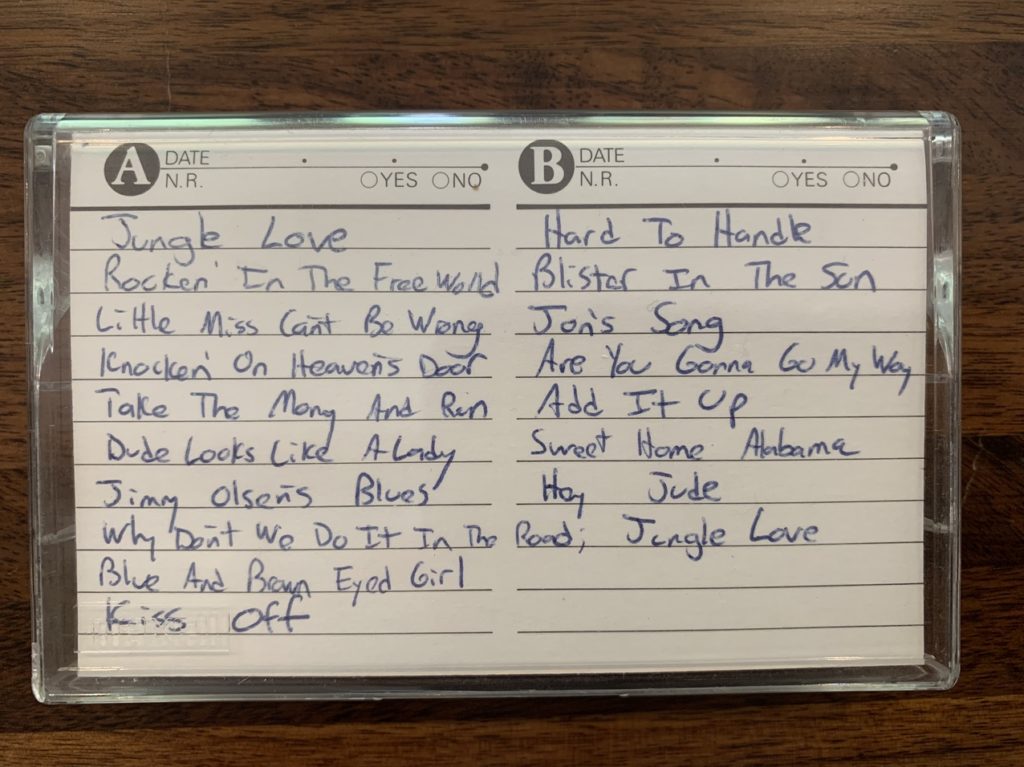 A DATE
N.R. YES NO
Jungle Love
Rocken' In The Free World
Little Miss Can't Be Wrong
Knocken' On Heaven's Door
Take The Mony And Run
Dude Looks Like A Lady
Jimmy Olsen's Blues
Why Don't We Do It In The Road;
Blue And Brown Eyed Girl
Kiss Off
B DATE
N.R. YES NO
Hard To Handle
Blister In The Sun
Jon's Song
Are You Gonna Go My Way
Add It Up
Sweet Home Alabama
Hey Jude
Jungle Love